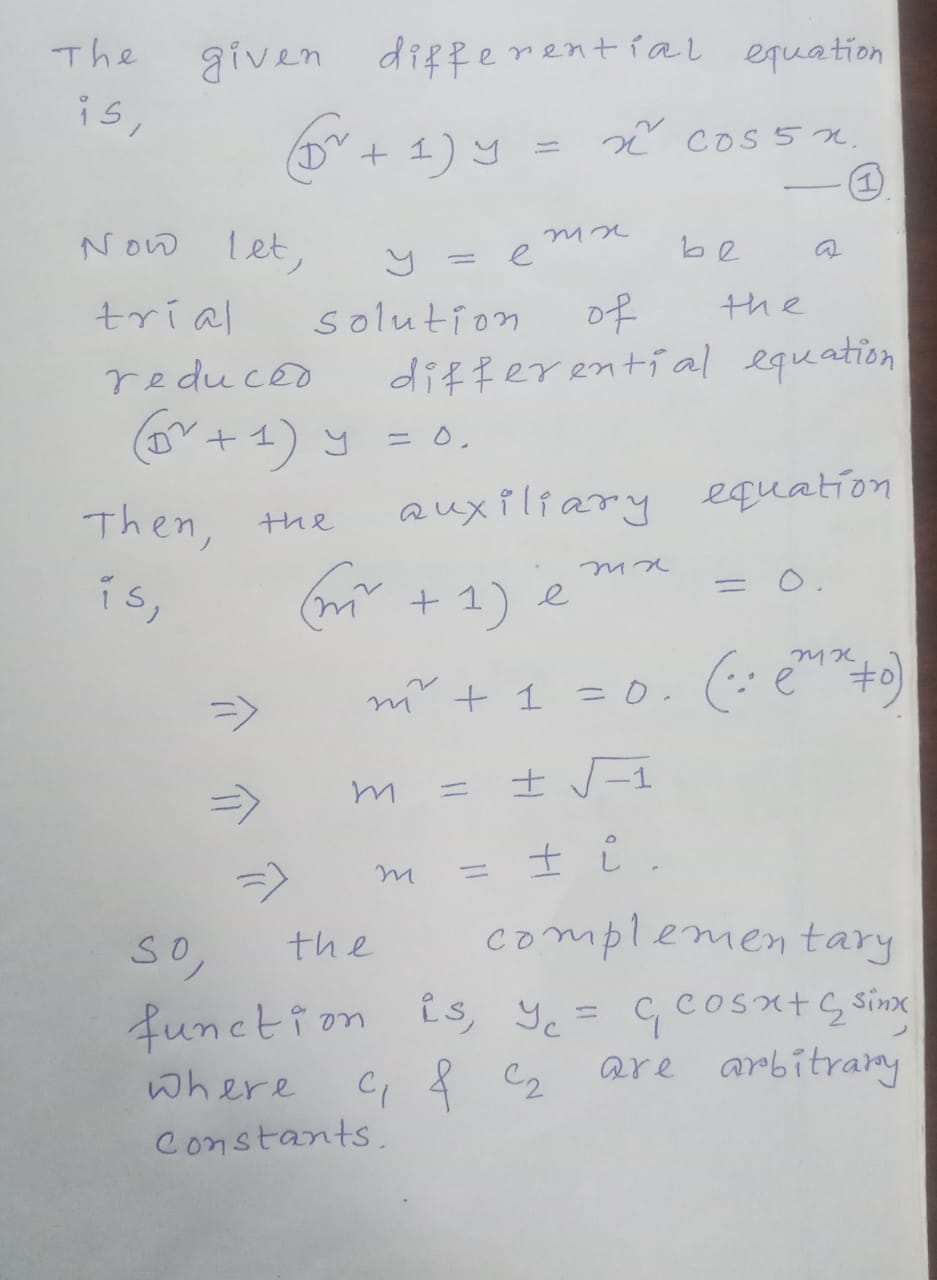 The given differential equation
is,
(D² + 1) y = x² cos 5x.
— ①.
Now let, y = e^{mx} be a
trial solution of the
reduced differential equation
(D² + 1) y = 0.
Then, the auxiliary equation
is, (m² + 1) e^{mx} = 0.
⇒ m² + 1 = 0. (∵ e^{mx} ≠ 0)
⇒ m = ± √-1
⇒ m = ± i.
So, the complementary
function is, y_c = c₁ cosx + c₂ sinx,
where c₁ & c₂ are arbitrary
constants.